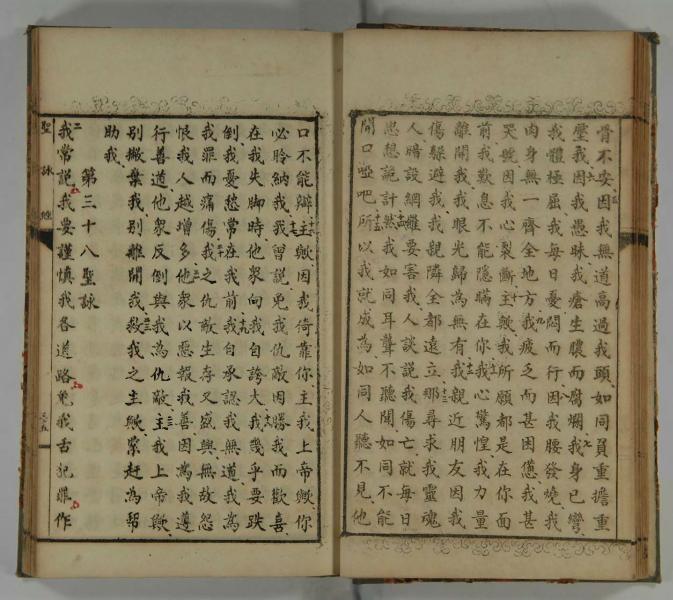 骨不安因我無道高過我頭如同負重擔重
壓我因我愚昧我瘡生膿而腐爛我身已彎
我體極屈我每日憂悶而行因我腰發燒我
肉身無一齊全地方我疲乏而甚因憊我甚
哭號因我心裂斷主歟我所願都是在你面
前我歎息不能隱瞞在你我心驚惶我力量
離開我我眼光歸為無有我親近朋友因我
傷躲避我我親隣全都遠立那尋求我靈魂
人暗設網羅要害我人談說我傷亡就每日
思想詭計然我如同耳聾不聽聞如同不能
開口啞吧所以我就成為如同人聽不見他
口不能辯主歟因我倚靠你主我上帝歟你
必聆納我我曾說免我仇敵因勝我而歡喜
在我失脚時他衆向我自誇大我幾乎要跌
倒我憂愁常在我前我自承認我無道我為
我罪而痛傷我之仇敵生存又盛興無故怨
恨我人越增多他衆以惡報我善因為我遵
行善道他衆反倒與我為仇敵主我上帝歟
別撇棄我別離開我救我之主歟緊赶為帮
助我
第三十八聖詠
二我常說我要謹慎我各道路免我舌犯罪作
聖詠經